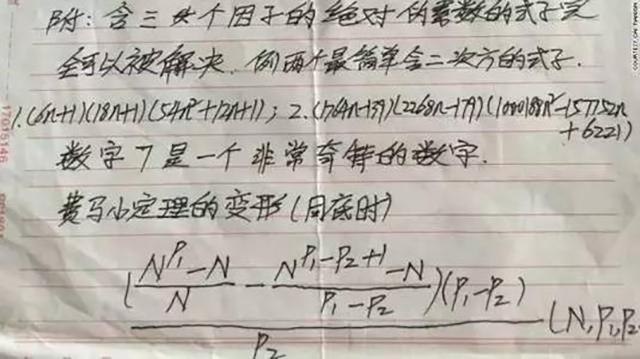 附:含三个因子的绝对伪素数的式子完
全可以被解决.例两个最简单含二次方的式子.
1.(6n+1)(18n+1)(54n²+12n+1); 2.(1764n-139)(2268n-179)(1000188n²-157752n
+6221)
数字7是一个非常奇特的数字.
费马小定理的变形(同底时)
(N^P₁-N/N - N^P₁-P₂+1-N/P₁-P₂)(P₁-P₂)/P₂ (N,P₁,P₂
17015146
COURTESY CAI YANGNI